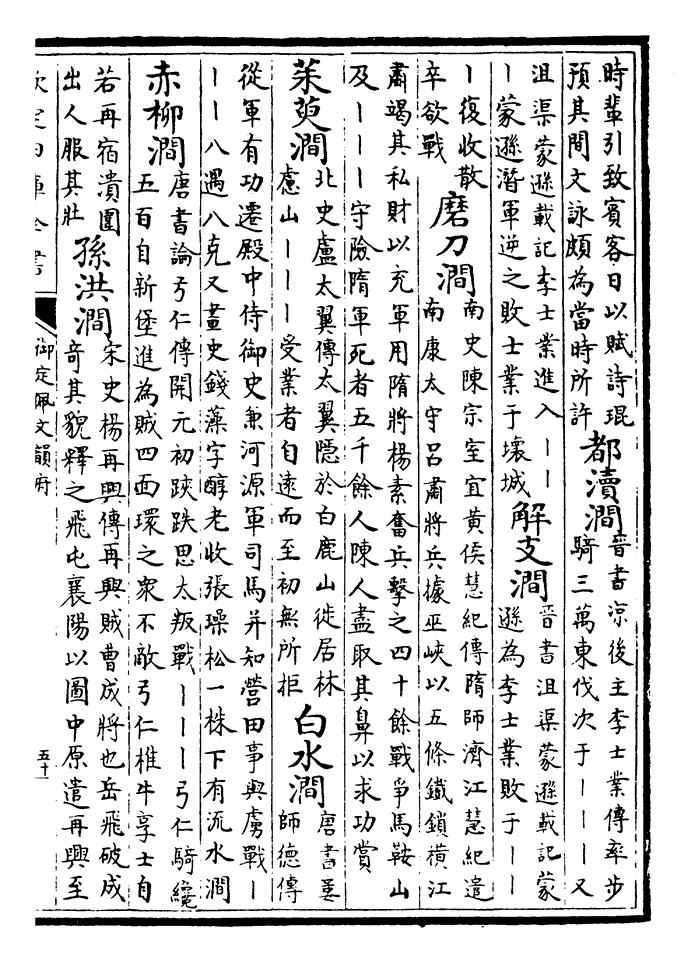 時輩引致賓客日以賦詩琨
預其間文詠頗為當時所許
都瀆澗
晉書涼後主李士業傳率步
騎三萬東伐次于丨丨丨又
沮渠蒙遜載記李士業進入丨丨
丨蒙遜潛軍逆之敗士業于壞城
解支澗
晉書沮渠蒙遜載記蒙
遜為李士業敗于丨丨
丨復收散
卒欲戰
磨刀澗
南史陳宗室宜黃侯慧紀傳隋師濟江慧紀遣
南康太守呂肅將兵據巫峽以五條鐵鎖橫江
肅竭其私財以充軍用隋將楊素奮兵擊之四十餘戰爭馬鞍山
及丨丨丨守險隋軍死者五千餘人陳人盡取其鼻以求功賞
茱萸澗
北史盧太翼傳太翼隱於白鹿山徙居林
慮山丨丨丨受業者自遠而至初無所拒
白水澗
唐書婁
師德傳
從軍有功遷殿中侍御史兼河源軍司馬并知營田事與虜戰丨
丨丨八遇八克又畫史錢藻字醇老收張璪松一株下有流水澗
赤柳澗
唐書論弓仁傳開元初䟎跌思太叛戰丨丨丨弓仁騎纔
五百自新堡進為賊四面環之衆不敵弓仁椎牛享士自
若再宿潰圍
出人服其壯
孫洪澗
宋史楊再興傳再興賊曹成將也岳飛破成
奇其貌釋之飛屯襄陽以圖中原遣再興至
欽定四庫全書
御定佩文韻府